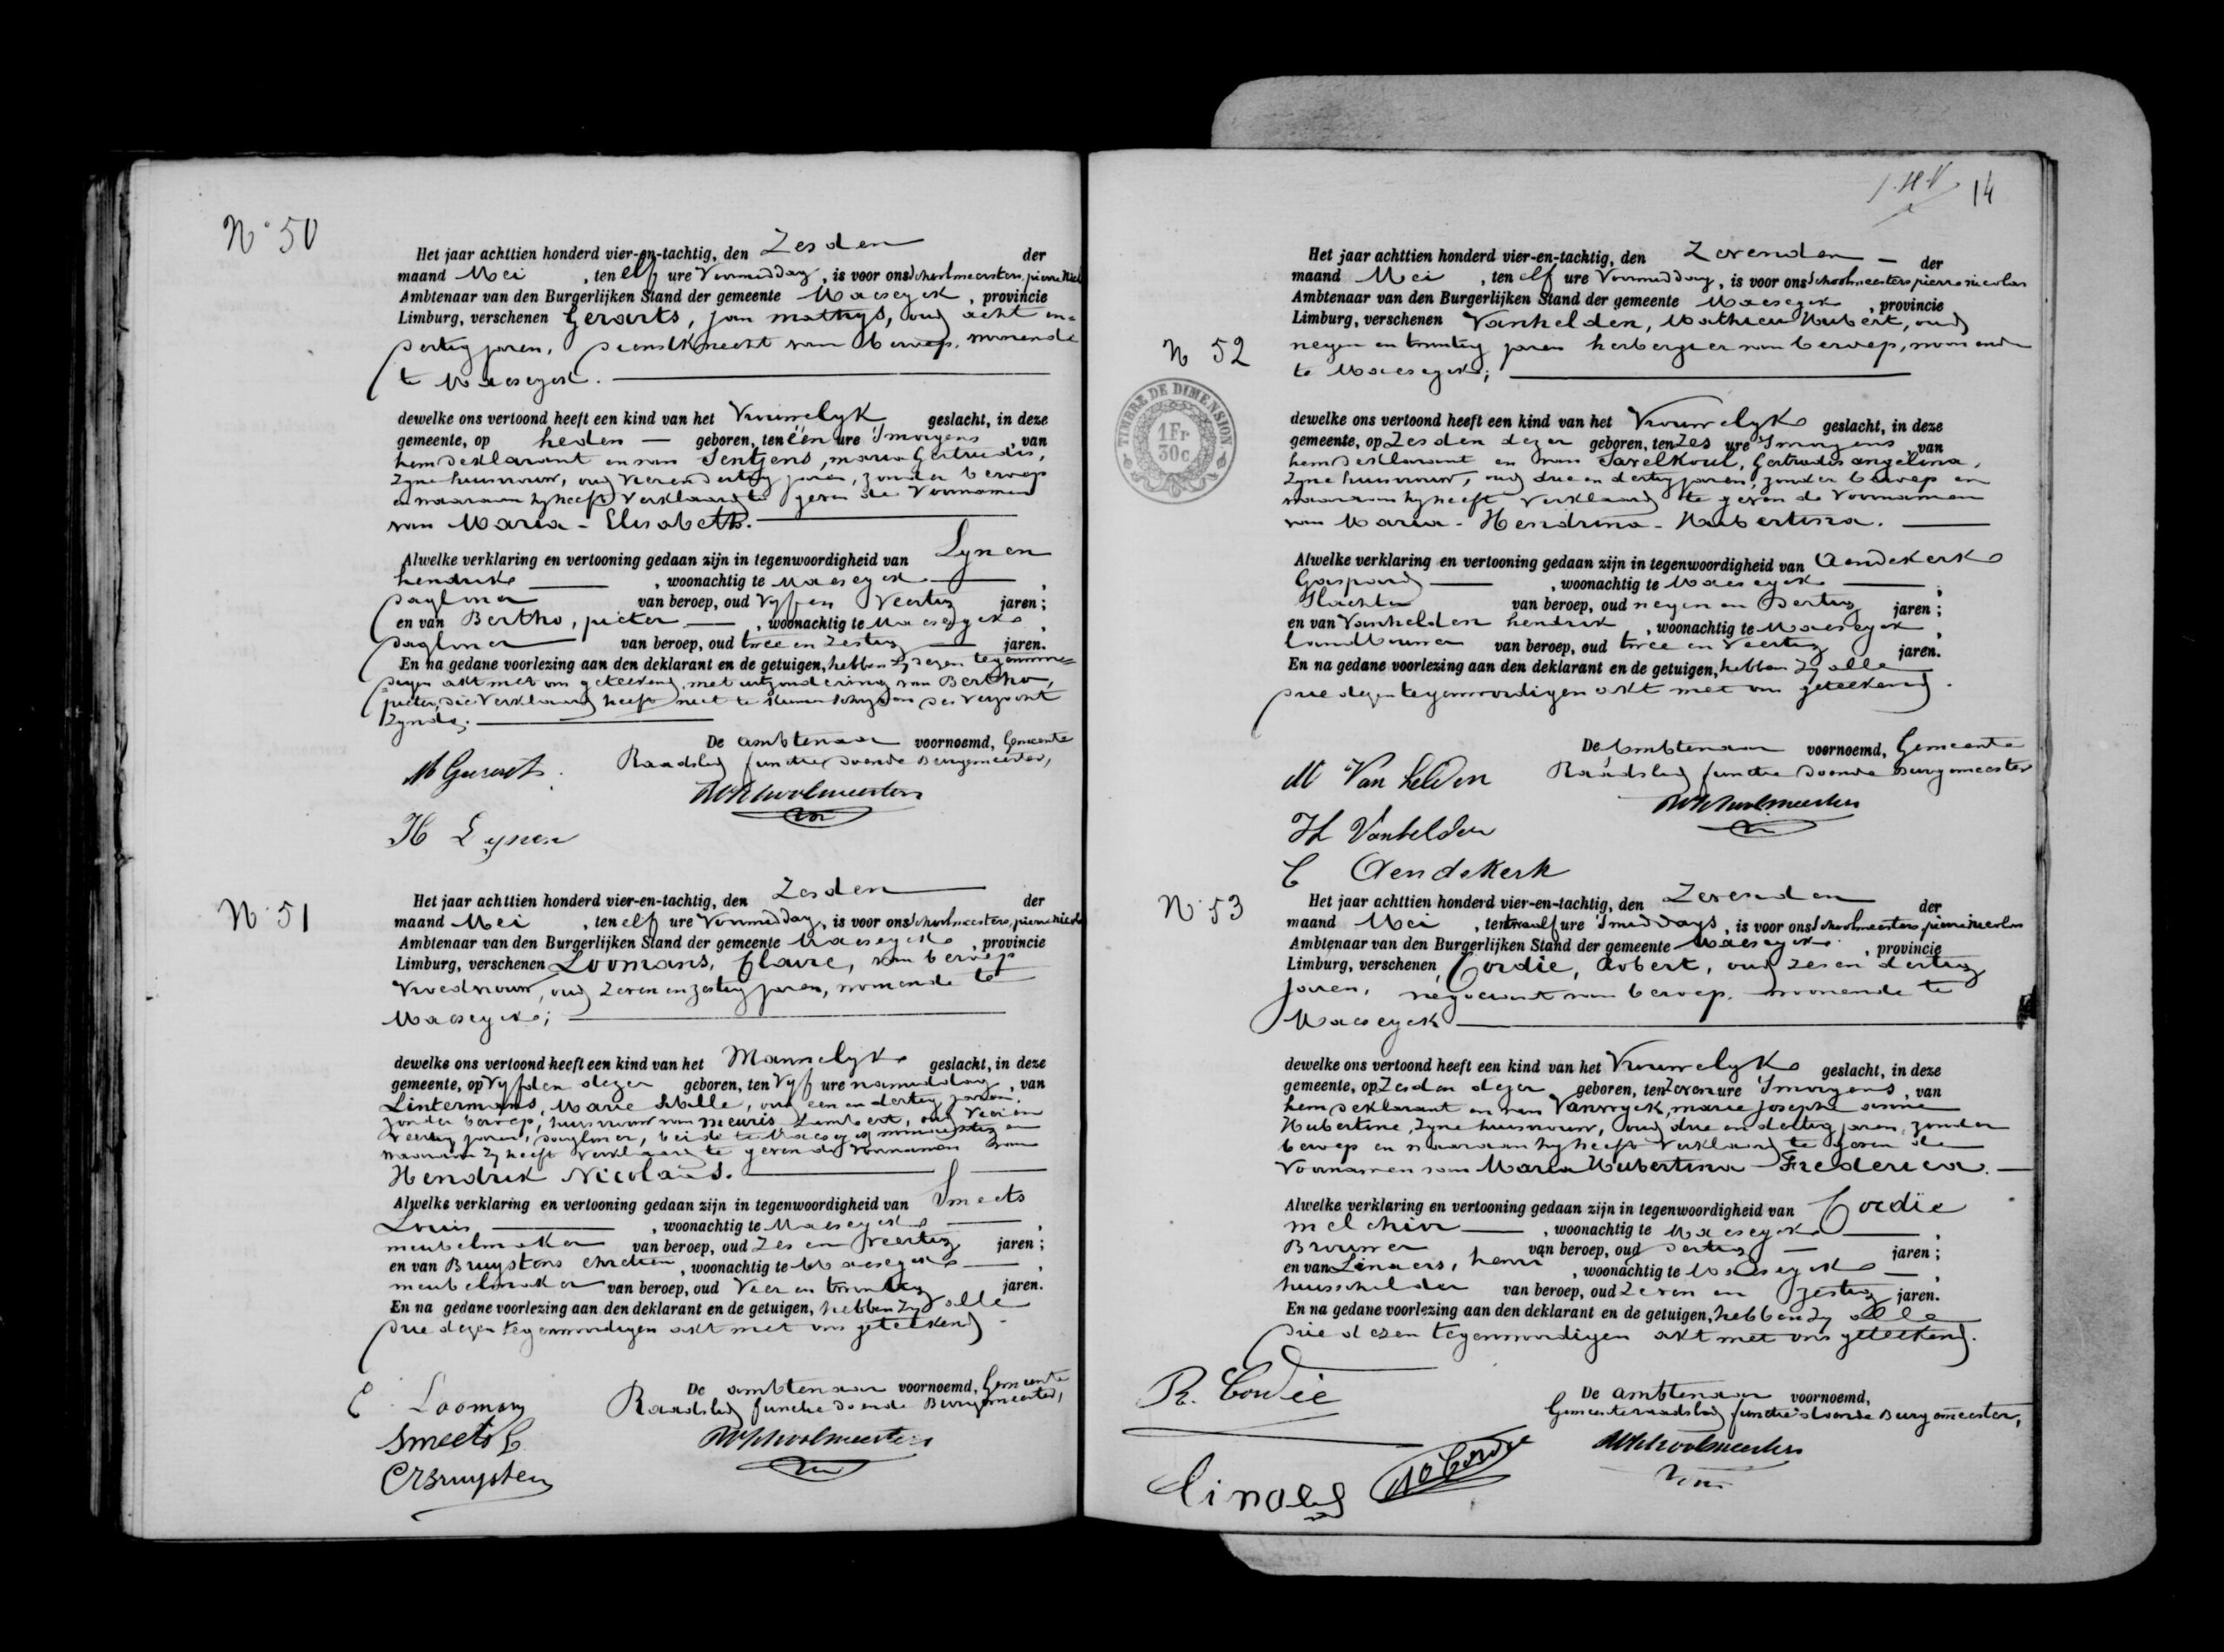 N° 50
Het jaar achttien honderd vier-en-tachtig, den Zesden der
maand Mei , ten elf ure Voormiddag, is voor ons Schoolmeesters, pierre Nicol
Ambtenaar van den Burgerlijken Stand der gemeente Maeseyck , provincie
Limburg, verschenen Gerarts, jan mathys, oud acht en
dertig jaren, dienstknecht van beroep, wonende
te Maeseyck.
dewelke ons vertoond heeft een kind van het Vrouwelyk geslacht, in deze
gemeente, op heden geboren, ten één ure 'smorgens , van
hem deklarant en van Jentjens, maria Gertrudis,
zyne huisvrouw, oud vier en dertig jaren, zonder beroep
en waaraan hy heeft verklaard te geven de Voornamen
van Maria - Elisabeth.
Alwelke verklaring en vertooning gedaan zijn in tegenwoordigheid van Lynen
hendrik , woonachtig te Maeseyck ,
dagloner van beroep, oud vyf en Veertig jaren ;
en van Bertho, pieter , woonachtig te Maeseyck ,
dagloner van beroep, oud twee en zestig jaren.
En na gedane voorlezing aan den deklarant en de getuigen, hebben zy dezen tegenwoor=
digen akt met ons geteekend, met uitzondering van Bertho,
pieter, die verklaard heeft niet te kunnen schryven des verzocht
zynde.
De ambtenaar voornoemd, Gemeente
Raadslid functie doende Burgemeester,
M Gerarts.
PNSchoolmeesters
H Lynen
N° 51
Het jaar achttien honderd vier-en-tachtig, den Zesden der
maand Mei , ten elf ure Voormiddag, is voor ons Schoolmeesters, pierre nicolas
Ambtenaar van den Burgerlijken Stand der gemeente Maeseyck , provincie
Limburg, verschenen Loomans, Claire, van beroep
Vroedvrouw, oud zeven en zestig jaren, wonende te
Maeseyck;
dewelke ons vertoond heeft een kind van het Mannelyk geslacht, in deze
gemeente, op Vyfden dezer geboren, ten Vyf ure namiddag , van
Lintermans, Marie Sibille, oud een en dertig jaren,
zonder beroep, huisvrouw van meuris Lambert, oud vier en
veertig jaren, dagloner, beide te Maeseyck woonachtig en
waaraan zy heeft verklaard te geven de Voornamen van
Hendrik Nicolaus.
Alwelke verklaring en vertooning gedaan zijn in tegenwoordigheid van Smeets
Louis , woonachtig te Maeseyck ,
meubelmaker van beroep, oud Zes en Veertig jaren ;
en van Bruystens Chretien , woonachtig te Maeseyck ,
meubelmaker van beroep, oud Vier en twintig jaren.
En na gedane voorlezing aan den deklarant en de getuigen, hebben zy alle
drie dezen tegenwoordigen akt met ons geteekend.
De ambtenaar voornoemd, Gemeente
Raadslid functie doende Burgemeester,
C Loomans
Smeets L
PNSchoolmeesters
CBruysten
14
N 52
TIMBRE DE DIMENSION
1 Fr
30c.
Het jaar achttien honderd vier-en-tachtig, den Zevenden der
maand Mei , ten elf ure Voormiddag, is voor ons Schoolmeesters pierre nicolas
Ambtenaar van den Burgerlijken Stand der gemeente Maeseyck , provincie
Limburg, verschenen Vanhelden, Mathieu Hubert, oud
negen en twintig jaren herbergier van beroep, wonende
te Maeseyck;
dewelke ons vertoond heeft een kind van het Vrouwelyk geslacht, in deze
gemeente, op Zesden dezer geboren, ten Zes ure 'smorgens , van
hem deklarant en van Savelkoul, Gertrudis angelina,
zyne huisvrouw, oud drie en dertig jaren, zonder beroep en
waaraan hy heeft verklaard te geven de Voornamen
van Maria - Hendrina - Hubertina.
Alwelke verklaring en vertooning gedaan zijn in tegenwoordigheid van Aendekerk
Gaspard , woonachtig te Maeseyck ,
Slachter van beroep, oud negen en Dertig jaren ;
en van Vanhelden hendrik , woonachtig te Maeseyck ,
landbouwer van beroep, oud twee en Veertig jaren.
En na gedane voorlezing aan den deklarant en de getuigen, hebben zy alle
drie dezen tegenwoordigen akt met ons geteekend.
De ambtenaar voornoemd, Gemeente
Raadslid functie doende Burgemeester
M Van helden
PNSchoolmeesters
H Vanhelden
C Aendekerk
N° 53
Het jaar achttien honderd vier-en-tachtig, den Zevenden der
maand Mei , ten twaalf ure 'smiddags , is voor ons Schoolmeesters pierre nicolas
Ambtenaar van den Burgerlijken Stand der gemeente Maeseyck , provincie
Limburg, verschenen Cordie, Robert, oud zes en dertig
jaren, négociant van beroep, wonende te
Maeseyck
dewelke ons vertoond heeft een kind van het Vrouwelyk geslacht, in deze
gemeente, op Zesden dezer geboren, ten Zeven ure 'smorgens , van
hem deklarant en van Vanwyck, marie josephe anne
Hubertine, zyne huisvrouw, oud drie en dertig jaren, zonder
beroep en waaraan hy heeft verklaard te geven de
Voornamen van Maria Hubertina - Frederica.
Alwelke verklaring en vertooning gedaan zijn in tegenwoordigheid van Cordie
melchior , woonachtig te Maeseyck ,
Brouwer van beroep, oud dertig jaren ;
en van Linders, henri , woonachtig te Maeseyck ,
huisschilder van beroep, oud Zeven en zestig jaren.
En na gedane voorlezing aan den deklarant en de getuigen, hebben zy alle
drie dezen tegenwoordigen akt met ons geteekend.
De ambtenaar voornoemd,
Gemeenteraadslid functie doende Burgemeester,
R. Cordie
PNSchoolmeesters
M Cordie